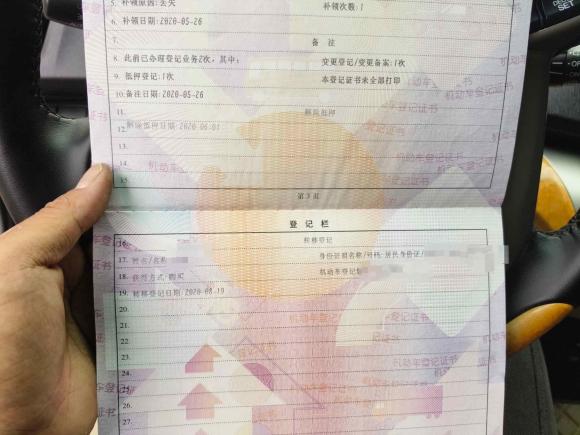 5. 补领原因:丢失 补领次数:1
6. 补领日期:2020-05-26
7. 备 注
8. 此前已办理登记业务2次，其中: 变更登记/变更备案:1次
9. 抵押登记:1次 本登记证书未全部打印
10. 备注日期:2020-05-26
11. 解除抵押
12. 解除抵押日期:2020-06-01
13.
14.
15.
第 3 页
登 记 栏
16. 转移登记
17. 姓名/名称 身份证明名称/号码:居民身份证/
18. 获得方式:购买 机动车登记
19. 转移登记日期:2020-08-19
20.
21.
22.
23.
24.
25.
26.
27.
机动车登记证书